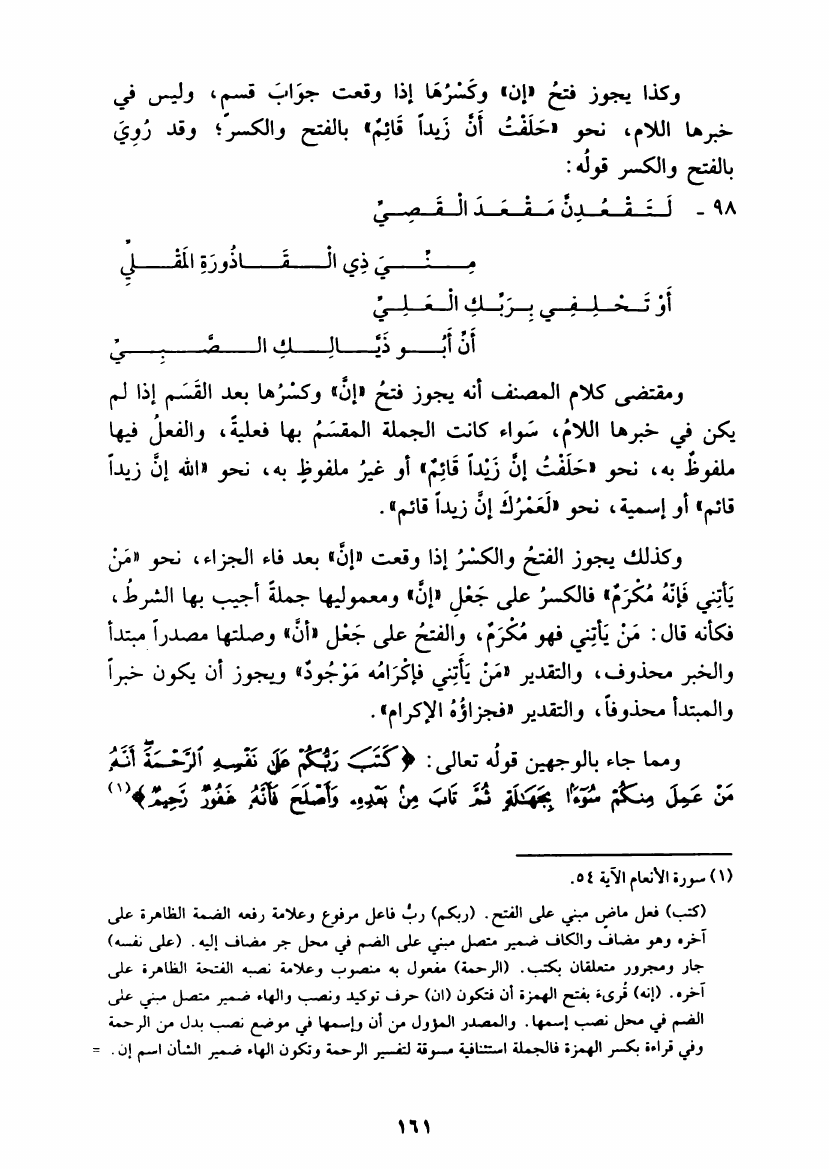 وكذا يجوز فتحُ «إن» وكَسْرُهَا إذا وقعت جوَابَ قسم، وليس في
خبرها اللام، نحو «حَلَفْتُ أَنَّ زَيداً قَائِمٌ» بالفتح والكسرِ؛ وقد رُوِيَ
بالفتح والكسر قولُه:
٩٨ - لَـتَـقْـعُـدِنَّ مَـقْـعَـدَ الْـقَـصِـيِّ
مِـنِّـيَ ذِي الْـقَـاذُورَةِ المَقْـلِيِّ
أَوْ تَـحْـلِـفِـي بِـرَبِّـكِ الْـعَـلِـيِّ
أَنِّ أَبُـو ذَيَّـالِـكِ الـصَّـبِـيِّ
ومقتضى كلام المصنف أنه يجوز فتحُ «إنَّ» وكسْرُها بعد القَسَم إذا لم
يكن في خبرها اللامُ، سَواء كانت الجملة المقسَمُ بها فعليةً، والفعلُ فيها
ملفوظٌ به، نحو «حَلَفْتُ إنَّ زَيْداً قَائِمٌ» أو غيرُ ملفوظٍ به، نحو «الله إنَّ زيداً
قائم» أو إسمية، نحو «لَعَمْرُكَ إنَّ زيداً قائم».
وكذلك يجوز الفتحُ والكسْرُ إذا وقعت «إنَّ» بعد فاء الجزاء، نحو «مَنْ
يَأتِني فَإنّهُ مُكْرَمٌ» فالكسرُ على جَعْلِ «إنَّ» ومعموليها جملةً أجيب بها الشرطُ،
فكأنه قال: مَنْ يَأتِني فهو مُكْرَمٌ، والفتحُ على جَعْل «أنَّ» وصلتها مصدراً مبتدأ
والخبر محذوف، والتقدير «مَنْ يَأْتِني فإكْرَامُه مَوْجُودٌ» ويجوز أن يكون خبراً
والمبتدأ محذوفاً، والتقدير «فجزاؤُهُ الإكرام».
ومما جاء بالوجهين قولُه تعالى: ﴿كَتَبَ رَبُّكُمْ عَلَىٰ نَفْسِهِ ٱلرَّحْمَةَ أَنَّهُۥ
مَنْ عَمِلَ مِنكُمْ سُوٓءًا بِجَهَٰلَةٍ ثُمَّ تَابَ مِنۢ بَعْدِهِۦ وَأَصْلَحَ فَأَنَّهُۥ غَفُورٌ رَّحِيمٌ﴾(١)
(١) سورة الأنعام الآية ٥٤.
(كتب) فعل ماضٍ مبني على الفتح. (ربكم) ربُّ فاعل مرفوع وعلامة رفعه الضمة الظاهرة على
آخره وهو مضاف والكاف ضمير متصل مبني على الضم في محل جر مضاف إليه. (على نفسه)
جار ومجرور متعلقان بكتب. (الرحمة) مفعول به منصوب وعلامة نصبه الفتحة الظاهرة على
آخره. (إنه) قُرىءَ بفتح الهمزة أن فتكون (ان) حرف توكيد ونصب والهاء ضمير متصل مبني على
الضم في محل نصب إسمها. والمصدر المؤول من أن وإسمها في موضع نصب بدل من الرحمة
وفي قراءة بكسر الهمزة فالجملة استئنافية مسوقة لتفسير الرحمة وتكون الهاء ضمير الشأن اسم إن. =
١٦١